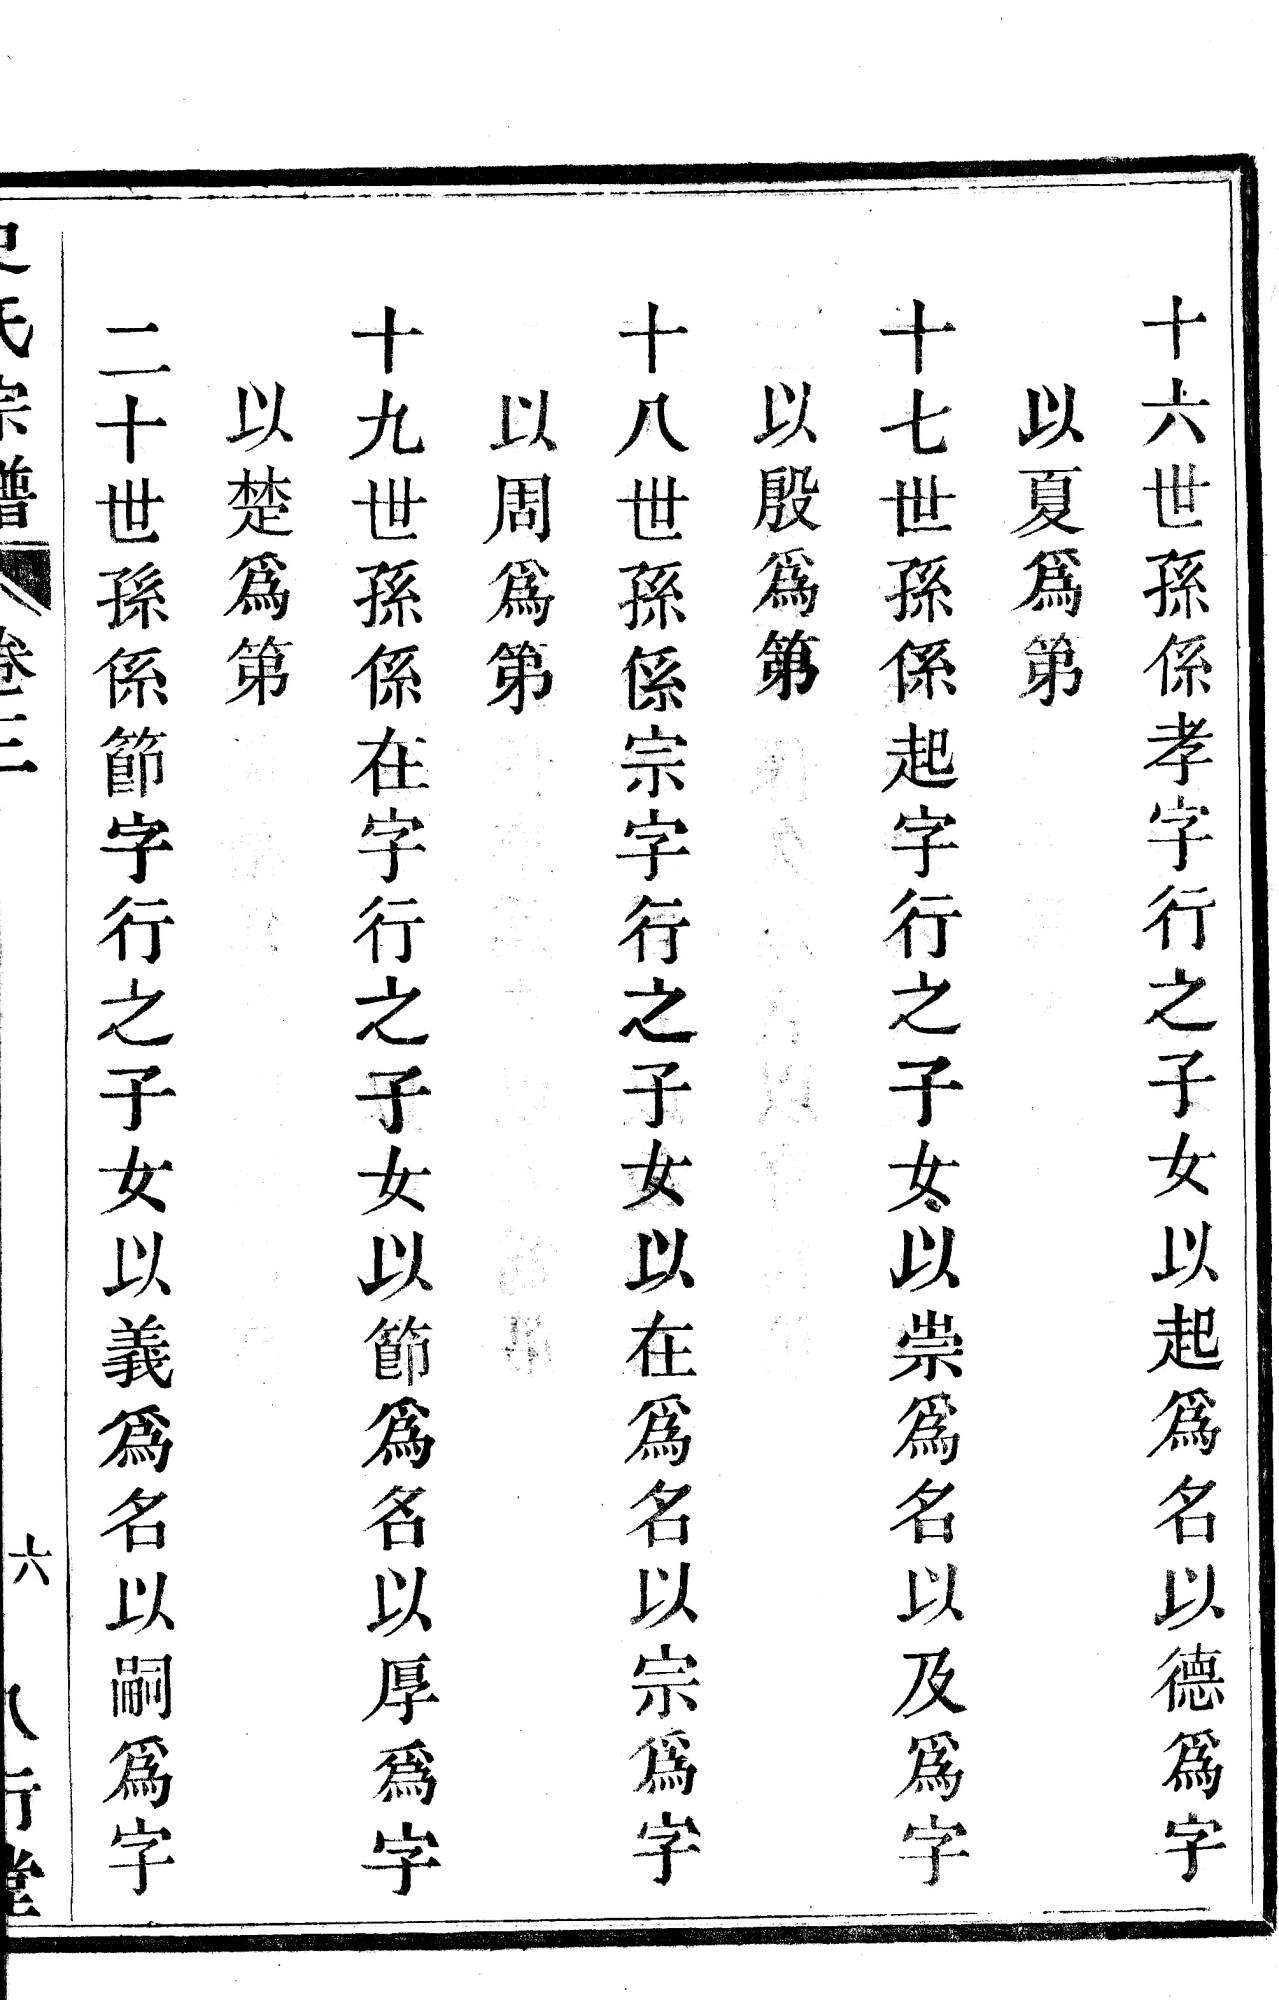 十六世孫係孝字行之子女以起爲名以德爲字
以夏爲第
十七世孫係起字行之子女以崇爲名以及爲字
以殷爲第
十八世孫係宗字行之子女以在爲名以宗爲字
以周爲第
十九世孫係在字行之子女以節爲名以厚爲字
以楚爲第
二十世孫係節字行之子女以義爲名以嗣爲字
史氏宗譜
卷三
六
八行堂